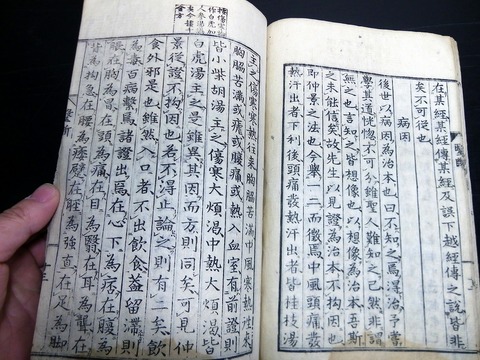 在某經某經傳某經及誤下越經傳之說皆非
矣不可從也
病因
後世以病因為治本也曰不知之焉得治予嘗
學其道恍惚不可分雖聖人難知之已然非謂
無之也言知之皆想像也以想像為治本吾斯
之未能信矣故先生以見證為治本不拘因也
即仲景之法也今舉一二而徵焉中風頭痛發
熱汗出者下利後頭痛發熱汗出者皆桂枝湯
主之傷寒寒熱往來胸脇苦滿中風寒熱往來
胸脇苦滿或瘧或腹痛或熱入血室有前證則
皆小柴胡湯主之傷寒大煩渴中熱大煩渴皆
白虎湯主之是雖異其因而方則同矣可見仲
景從證不拘因也若不得止論之則有二矣飲
食外邪是也雖然入口者不出飲食蓋留滯則
為毒百病繫焉諸證出焉在心下為痞在腹為
脹在胸為冒在頭為痛在目為翳在耳為聾在
背為拘急在腰為痿躄在脛為強直在足為脚
醫斷